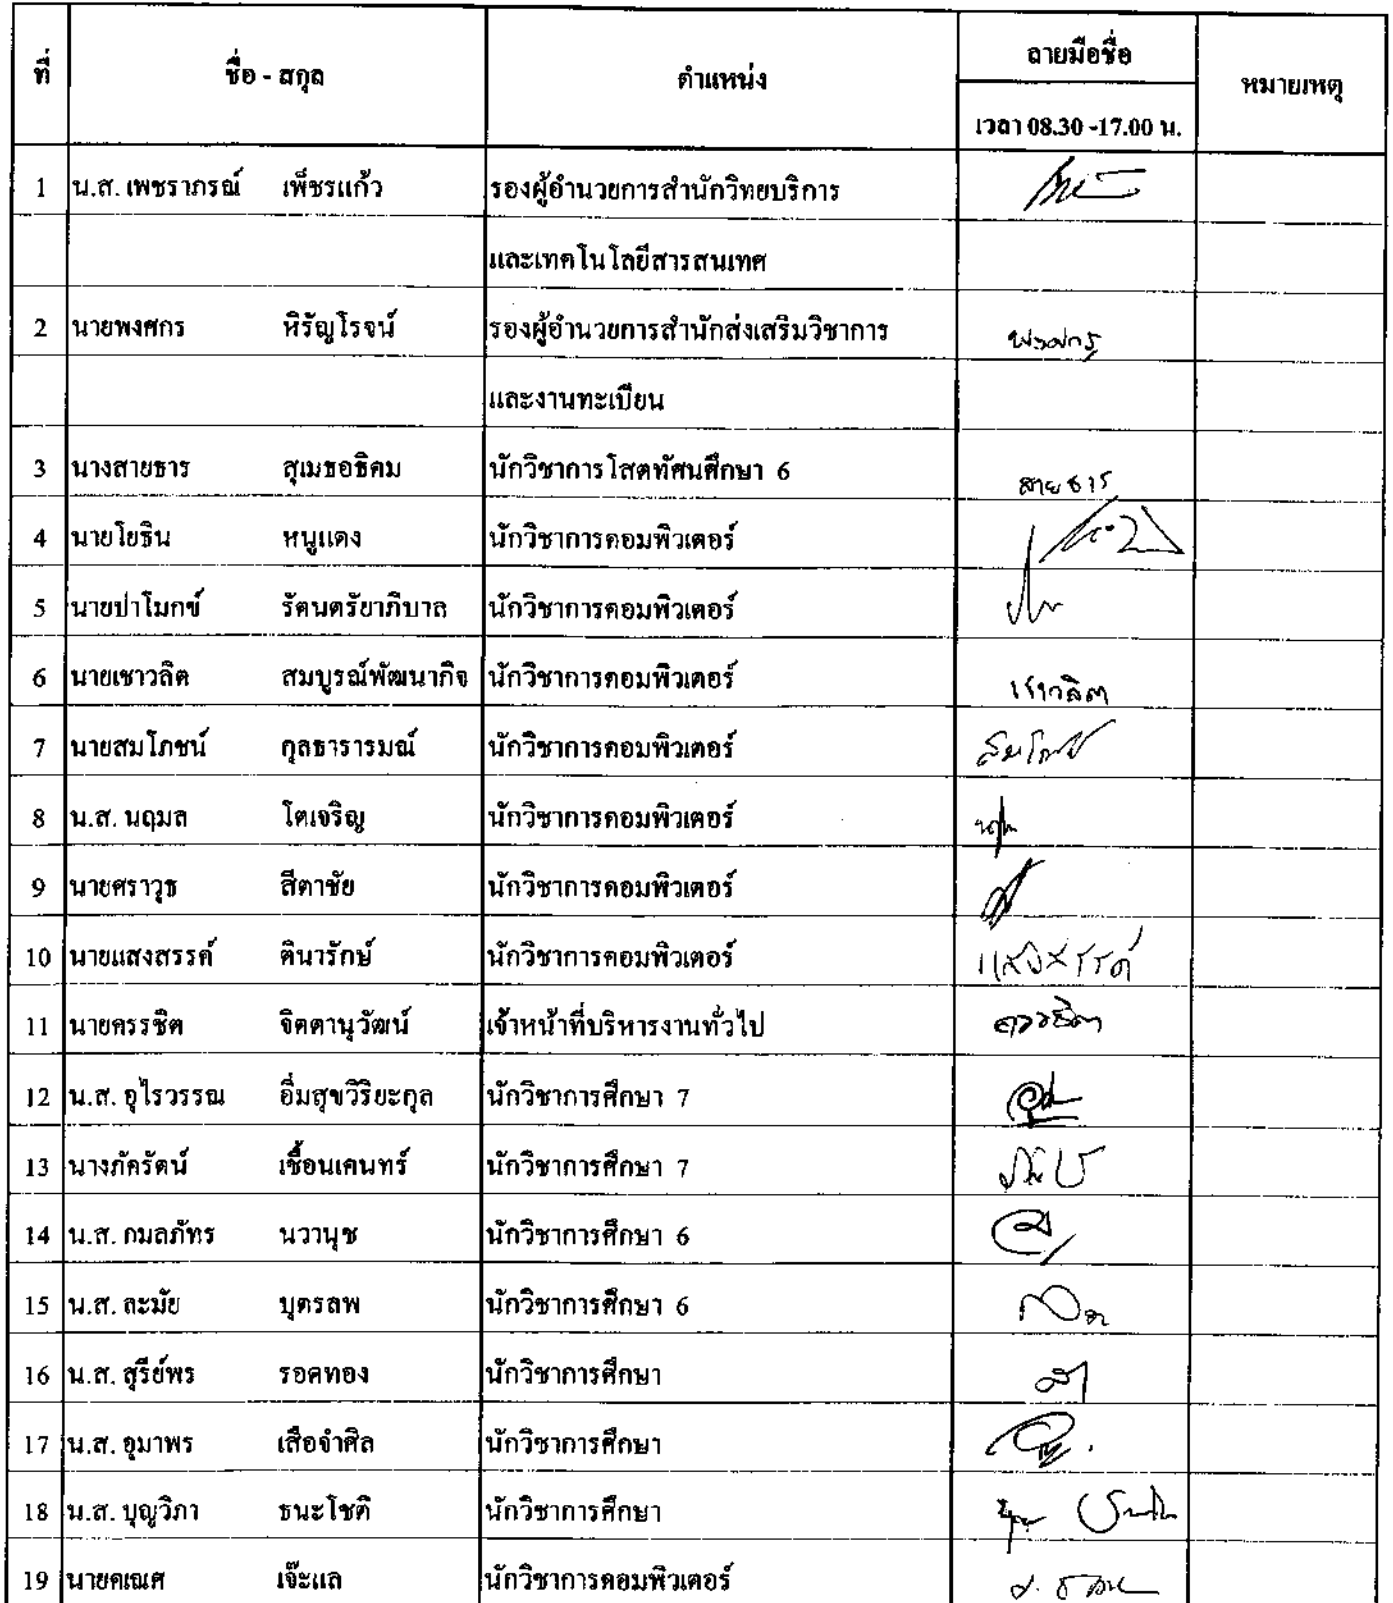 ที่ ชื่อ - สกุล ตำแหน่ง ลายมือชื่อ หมายเหตุ
เวลา 08.30 -17.00 น.
1 น.ส. เพชราภรณ์ เพ็ชรแก้ว รองผู้อำนวยการสำนักวิทยบริการ
และเทคโนโลยีสารสนเทศ
2 นายพงศกร หิรัญโรจน์ รองผู้อำนวยการสำนักส่งเสริมวิชาการ พงศกร
และงานทะเบียน
3 นางสายธาร สุเมธอธิคม นักวิชาการโสตทัศนศึกษา 6 สายธาร
4 นายโยธิน หนูแดง นักวิชาการคอมพิวเตอร์
5 นายปาโมกข์ รัตนตรัยาภิบาล นักวิชาการคอมพิวเตอร์
6 นายเชาวลิต สมบูรณ์พัฒนากิจ นักวิชาการคอมพิวเตอร์ เชาวลิต
7 นายสมโภชน์ กุลธารารมณ์ นักวิชาการคอมพิวเตอร์ สมโภชน์
8 น.ส. นฤมล โตเจริญ นักวิชาการคอมพิวเตอร์
9 นายศราวุธ สีตาชัย นักวิชาการคอมพิวเตอร์
10 นายแสงสรรค์ ตินารักษ์ นักวิชาการคอมพิวเตอร์ แสงสรรค์
11 นายครรชิต จิตตานุวัฒน์ เจ้าหน้าที่บริหารงานทั่วไป ครรชิต
12 น.ส. อุไรวรรณ อิ่มสุขวิริยะกุล นักวิชาการศึกษา 7
13 นางภัครัตน์ เชื้อนเคนทร์ นักวิชาการศึกษา 7
14 น.ส. กมลภัทร นวานุช นักวิชาการศึกษา 6
15 น.ส. ละมัย บุตรลพ นักวิชาการศึกษา 6
16 น.ส. สุรีย์พร รอดทอง นักวิชาการศึกษา
17 น.ส. อุมาพร เสือจำศิล นักวิชาการศึกษา
18 น.ส. บุญวิภา ธนะโชติ นักวิชาการศึกษา
19 นายคเณศ เจ๊ะแล นักวิชาการคอมพิวเตอร์